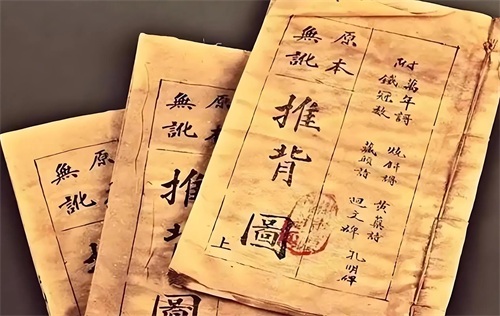 附
萬年謌 燒餅謌 黃蘗詩 孔明碑
鐵冠數 藏頭詩 回文碑
原本
無訛
推背圖
上
原本
無訛
推
圖
原本
無訛